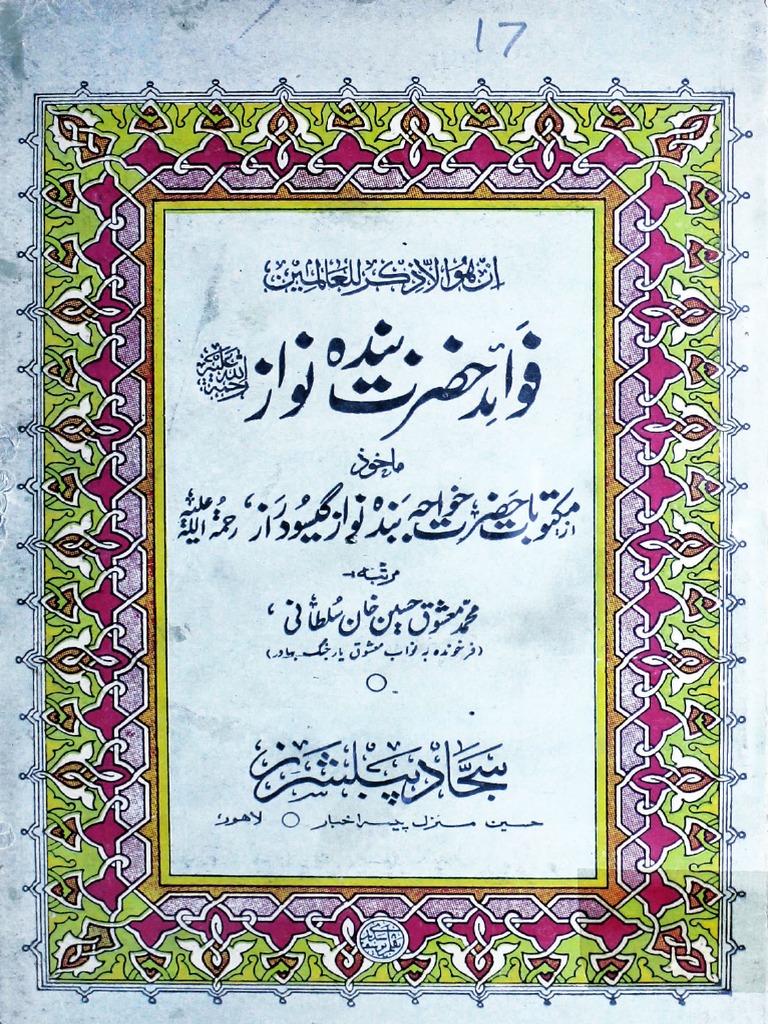 17
ان ھو الا ذکر للعالمین
فوائد حضرت بندہ نواز رحمۃ اللہ علیہ
ماخوذ
از مکتوبات حضرت خواجہ بندہ نواز گیسودراز، رحمۃ اللہ علیہ
مرتبہ:-
محمد معشوق حسین خان سلطانی،
(فرخوندہ بہ نواب معشوق یار جنگ بہادر)
سجاد پبلشرز
حسین منزل پیسہ اخبار ○ لاہور